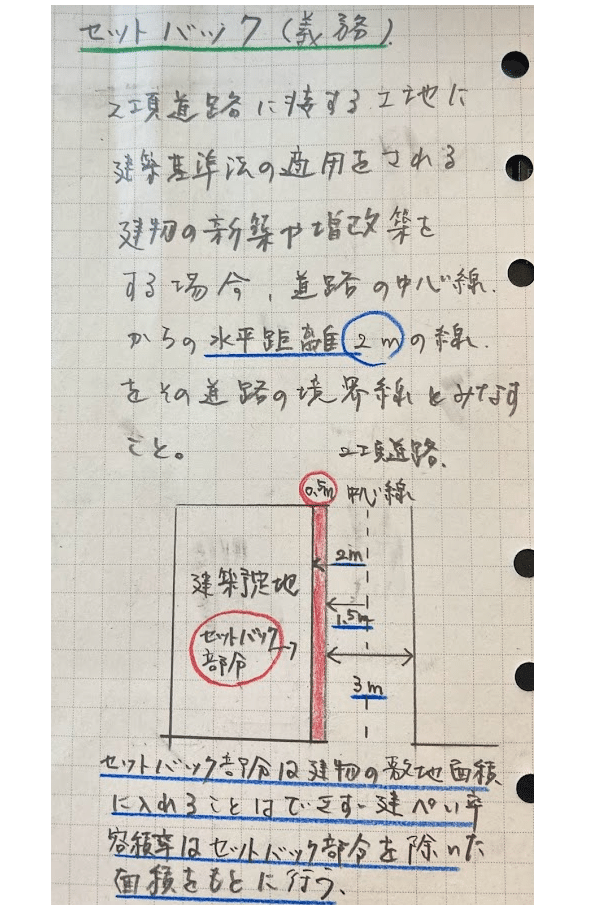 セットバック(義務)
2項道路に接する土地に
建築基準法の適用をされる
建物の新築や増改築を
する場合、道路の中心線
からの水平距離2mの線
をその道路の境界線とみなす
こと。
2項道路
0.5m 中心線
2m
建築予定地
1.5m
セットバック
部分
3m
セットバック部分は建物の敷地面積
に入れることはできず、建ぺい率
容積率はセットバック部分を除いた
面積をもとに行う、